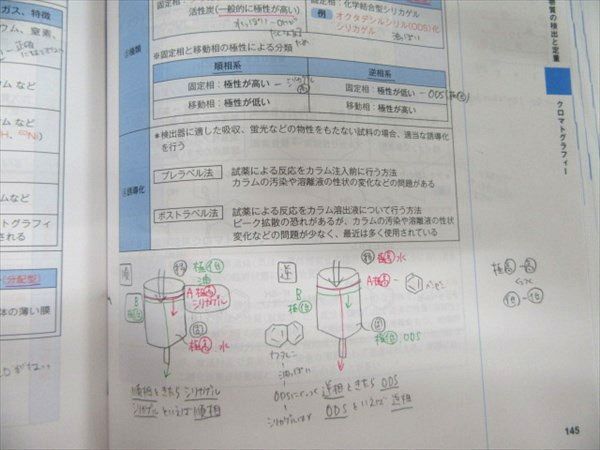 ガス、特徴
ウム、窒素、
ウム など
ム など
など
トグラフィ
される
(分配型)
体の薄い膜
活性炭(一般的に極性が高い)
固定相:化学結合型シリカゲル
例 オクタデシルシリル(ODS)化
シリカゲル
油っぽい
②種類
※固定相と移動相の極性による分類
順相系
逆相系
固定相:極性が高い
固定相:極性が低い - ODS
移動相:極性が低い
移動相:極性が高い
③誘導化
*検出器に適した吸収、蛍光などの物性をもたない試料の場合、適当な誘導化
を行う
プレラベル法
試薬による反応をカラム注入前に行う方法
カラムの汚染や溶離液の性状の変化などの問題がある
ポストラベル法
試薬による反応をカラム溶出液について行う方法
ピーク拡散の恐れがあるが、カラムの汚染や溶離液の性状
変化などの問題が少なく、最近は多く使用されている
順
移 極低
油
A 極高
シリカゲル
B
固
極高 水
順相ときたら シリカゲル
シリカゲルといえば 順相
逆
移 極高 水
A 極高 - ベンゼン
B
極低
固
極低 ODS
ナフタレン
油っぽい
逆相ときたら ODS
ODSといえば 逆相
極高 - 極高
低 - 低
物質の検出と定量
クロマトグラフィー
145